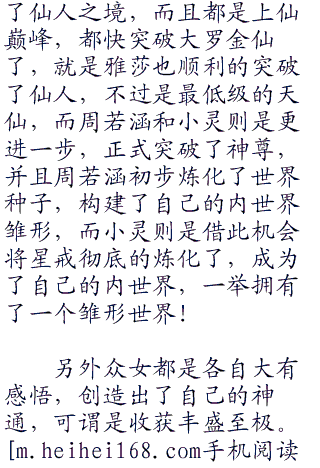 了仙人之境，而且都是上仙
巅峰，都快突破大罗金仙
了，就是雅莎也顺利的突破
了仙人，不过是最低级的天
仙，而周若涵和小灵则是更
进一步，正式突破了神尊，
并且周若涵初步炼化了世界
种子，构建了自己的内世界
雏形，而小灵则是借此机会
将星戒彻底的炼化了，成为
了自己的内世界，一举拥有
了一个雏形世界！
另外众女都是各自大有
感悟，创造出了自己的神
通，可谓是收获丰盛至极。
[m.heihei168.com手机阅读